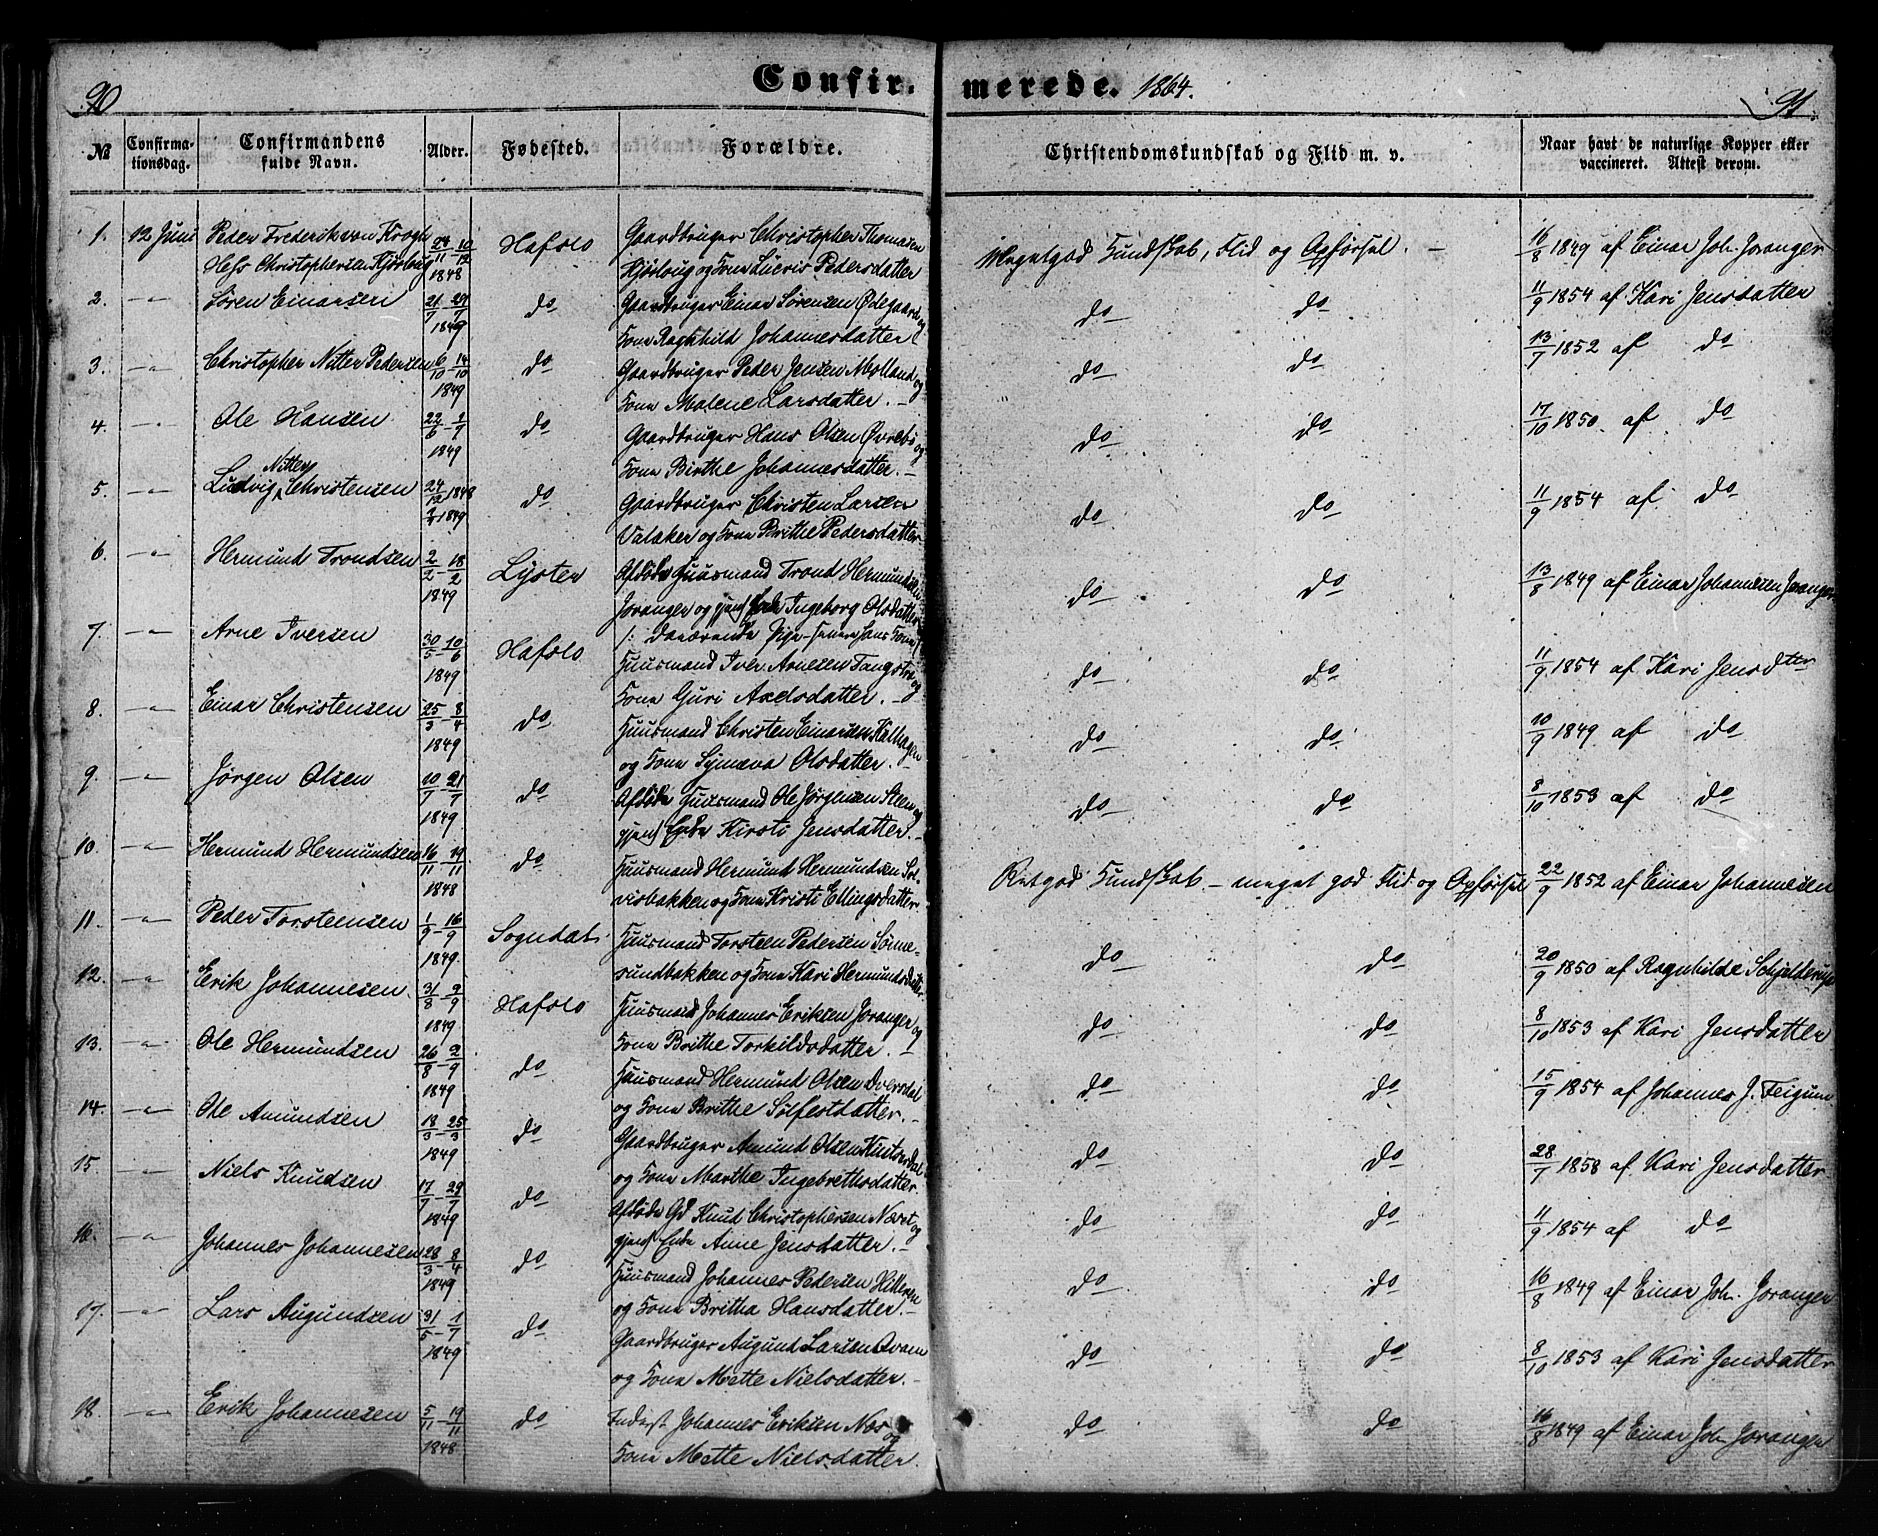 90
Confir-
merede. 1864.
91
№ Confirma-tionsdag. Confirmandens fulde Navn. Alder. Fødested. Forældre. Christendomskundskab og Flid m. v. Naar havt de naturlige Kopper eller vaccineret. Attest derom.
1. 12 Juni Peder Frederik von Krogh 24/11 - 10/12 Hafslo Gaardbruger Christopher Thomasen Megetgod Kundskab, Flid og Opførsel. — 16/8 1849 af Einar Joh. Joranger
Hess Christophersen Kjörlaug 1848 Kjörlaug og Kone Lucris Pedersdatter
2. —"— Søren Einarsen 21/7 - 29/7 do Gaardbruger Einar Sörensen Ødegaard og do do 11/9 1854 af Kari Jensdatter
1849 Kone Ragnhild Johannesdatter
3. —"— Christopher Nitter Pedersen 6/10 - 14/10 do Gaardbruger Peder Jensen Molland og do do 13/7 1852 af do
1849 Kone Malene Larsdatter. —
4. —"— Ole Hansen 22/6 - 1/7 do Gaardbruger Hans Olsen Øvrebö og do do 17/10 1850 af do
1849 Kone Birthe Johannesdatter. —
Nitter
5. —"— Ludvig Christensen 24/12 1848 do Gaardbruger Christen Larsen do do 11/9 1854 af do
1849 Valaker og Kone Brithe Pedersdatter
6. —"— Hermund Trondsen 2/2 - 18/2 Lyster Afdöde Huusmand Trond Hermundsen do do 13/8 1849 af Einar Johannesen Joranger
1849 Joranger og gjenl Enke Ingeborg Olsdatter
/: daværende Pige - senere hans Kone
7. —"— Arne Iversen 30/5 - 10/6 Hafslo Huusmand Iver Arnesen Tangstræ og do do 11/9 1854 af Kari Jensdter
1849 Kone Guri Axelsdatter. —
8. —"— Einar Christensen 25/3 - 8/4 do Huusmand Christen Einarsen Kalhagen do do 10/9 1849 af do
1849 og Kone Synneva Olsdatter. —
9. —"— Jørgen Olsen 10/7 - 21/7 do Afdöde Huusmand Ole Jörgensen Steen og do do 8/10 1853 af do
1849 gjenl Enke Kirsti Jensdatter. —
10. —"— Hermund Hermundsen 16/11 - 19/11 do Huusmand Hermund Hermundsen Sol- Retgod Kundskab — meget god Flid og Opförsel 22/9 1852 af Einar Johannesen
1848 visbakken og Kone Kristi Ellingsdatter
11. —"— Peder Torsteinsen 1/9 - 16/9 Sogndal Huusmand Torsteen Pedersen Sönne- do do 20/9 1850 af Ragnhilde Schjelderup
1849 sundbakken og Kone Kari Hermundsdatter
12. —"— Erik Johannesen 31/8 - 9/9 Hafslo Huusmand Johannes Eriksen Joranger og do do 8/10 1853 af Kari Jensdatter
1849 Kone Brithe Torkildsdatter. —
13. —"— Ole Hermundsen 26/8 - 2/9 do Huusmand Hermund Olsen Dversdal do do 15/9 1854 af Johannes J. Feigum
1849 og Kone Brithe Solfestdatter. —
14. —"— Ole Amundsen 18/3 - 25/3 do Gaardbruger Amund Olsen Kintserdal do do 28/7 1858 af Kari Jensdatter
1849 og Kone Marthe Ingebrethsdatter.
15. —"— Niels Knudsen 17/7 - 29/7 do Afdöde Gd Knud Christophersen Navet og do do 11/9 1854 af do
1849 gjenl Enke Anne Jensdatter. —
16. —"— Johannes Johannesen 28/3 - 8/4 do Huusmand Johannes Pedersen Hilleren do do 16/8 1849 af Einar Joh. Joranger
1849 og Kone Britha Hansdatter. —
17. —"— Lars Augundsen 31/5 - 1/7 do Gaardbruger Augund Larsen Qvam do do 8/10 1853 af Kari Jensdatter
1849 og Kone Mette Nielsdatter. —
18. —"— Erik Johannesen 5/11 - 19/11 do Inderst Johannes Eriksen Næs og do do 16/8 1849 af Einar Joh Joranger
1848 Kone Mette Nielsdatter.